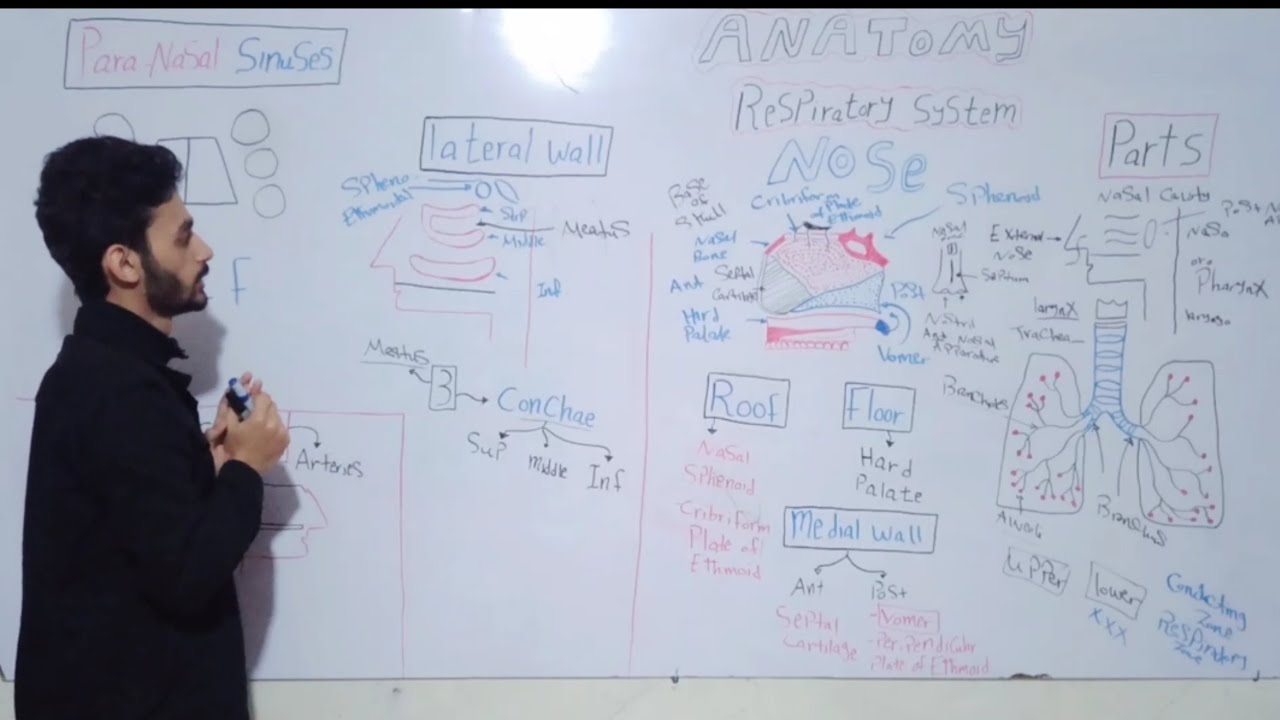 Para Nasal Sinuses
F
Arteries
lateral wall
Spheno
Ethmoidal
Sup
Middle
Meatus
Inf
Meatus
3
Conchae
Sup
Middle
Inf
ANATOMY
Respiratory System
NOSE
Base
of
Skull
Cribriform Plate
of Ethmoid
Sphenoid
Nasal
Bone
Ant
Septal
Cartilage
Hard
Palate
Post
Vomer
Nasal
Septum
Nostril
Ant Nasal
Apparatus
Roof
Nasal
Sphenoid
Cribriform
Plate of
Ethmoid
Floor
Hard
Palate
Medial wall
Ant
Septal
Cartilage
Post
-Vomer
-Perpendicular
Plate of Ethmoid
Parts
Nasal Cavity
External
Nose
Post N
Naso
oro
Pharynx
laryngo
larynx
Trachea
Bronchus
Upper
lower
xxx
Conducting
Zone
Respiratory
Zone